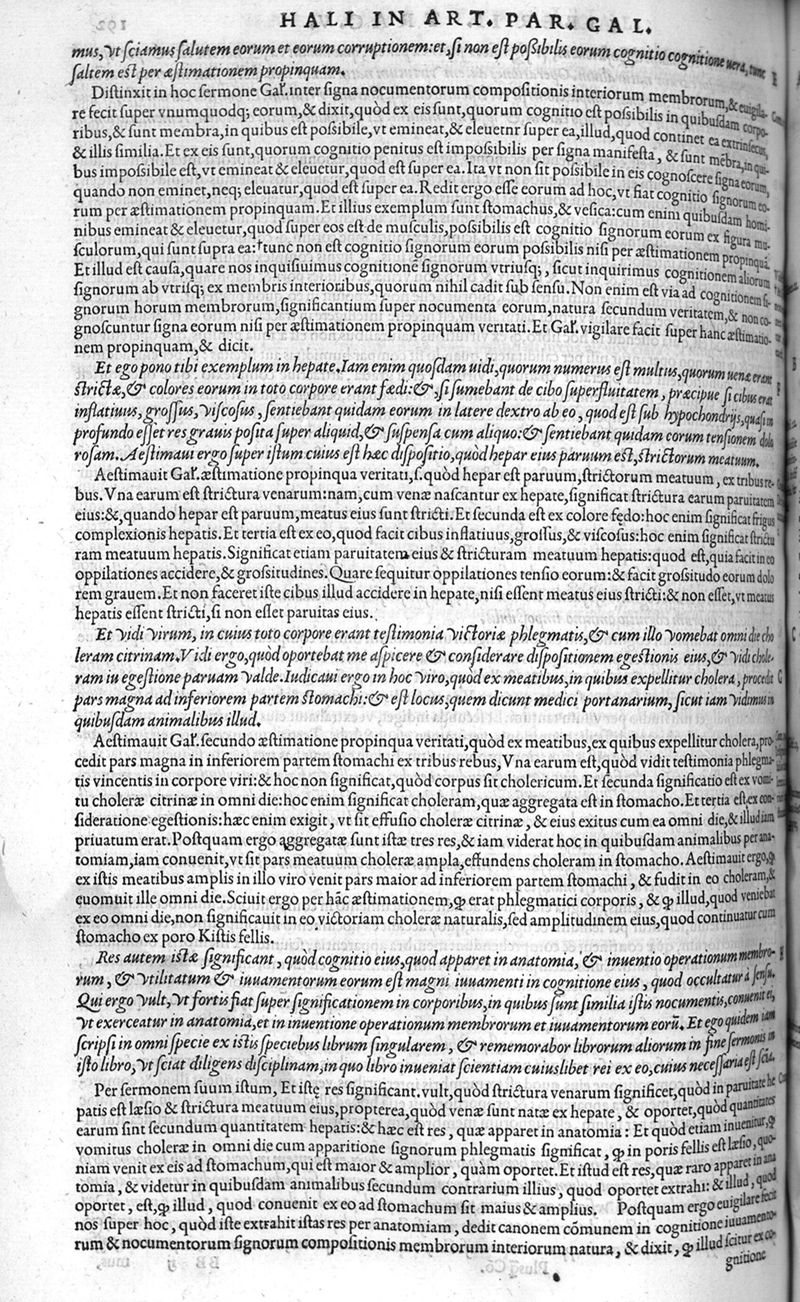 HALI IN ART. PAR. GAL.
mus, vt sciamus salutem eorum et eorum corruptionem: et, si non est possibilis eorum cognitio cognitione uera, tunc
saltem est per æstimationem propinquam.
Distinxit in hoc sermone Gal'. inter signa nocumentorum compositionis interiorum membrorum, & euigila-
re fecit super vnumquodq; eorum, & dixit, quòd ex eis sunt, quorum cognitio est possibilis in quibusdam corpo-
ribus, & sunt membra, in quibus est possibile, vt emineat, & eleuetnr super ea, illud, quod continet ea extrinsecus,
& illis similia. Et ex eis sunt, quorum cognitio penitus est impossibilis per signa manifesta, & sunt mẽbra, in qui-
bus impossibile est, vt emineat & eleuetur, quod est super ea. Ita vt non sit possibile in eis cognoscere signa eorum,
quando non eminet, neq; eleuatur, quod est super ea. Redit ergo esse eorum ad hoc, vt fiat cognitio signorum eo-
rum per æstimationem propinquam. Et illius exemplum sunt stomachus, & vesica: cum enim quibusdam homi-
nibus emineat & eleuetur, quod super eos est de musculis, possibilis est cognitio signorum eorum ex figura mu-
sculorum, qui sunt supra ea: †tunc non est cognitio signorum eorum possibilis nisi per æstimationem propinquã.
Et illud est causa, quare nos inquisiuimus cognitionẽ signorum vtriusq;, sicut inquirimus cognitionem aliorum
signorum ab vtrisq; ex membris interioribus, quorum nihil cadit sub sensu. Non enim est via ad cognitionem si-
gnorum horum membrorum, significantium super nocumenta eorum, natura secundum veritatem, & non co-
gnoscuntur signa eorum nisi per æstimationem propinquam veritati. Et Gal'. vigilare facit super hanc æstimatio-
nem propinquam, & dicit.
Et ego pono tibi exemplum in hepate. Iam enim quosdam uidi, quorum numerus est multius, quorum uenæ erant
strictæ, & colores eorum in toto corpore erant fœdi: &, si sumebant de cibo superfluitatem, præcipue si cibus erat
inflatiuus, grossus, viscosus, sentiebant quidam eorum in latere dextro ab eo, quod est sub hypochondrijs, quasi in
profundo esset res grauis posita super aliquid, & suspensa cum aliquo: & sentiebant quidam eorum tensionem dolo
rosam. Aestimaui ergo super istum cuius est hæc dispositio, quòd hepar eius paruum est, strictorum meatuum.
Aestimauit Gal'. æstimatione propinqua veritati, s. quòd hepar est paruum, strictorum meatuum, ex tribus re-
bus. Vna earum est strictura venarum: nam, cum venæ nascantur ex hepate, significat strictura earum paruitatem
eius: &, quando hepar est paruum, meatus eius sunt stricti. Et secunda est ex colore fędo: hoc enim significat frigus
complexionis hepatis. Et tertia est ex eo, quod facit cibus inflatiuus, grossus, & viscosus: hoc enim significat strictu
ram meatuum hepatis. Significat etiam paruitatem eius & stricturam meatuum hepatis: quod est, quia facit in eo
oppilationes accidere, & grossitudines. Quare sequitur oppilationes tensio eorum: & facit grossitudo eorum dolo
rem grauem. Et non faceret iste cibus illud accidere in hepate, nisi essent meatus eius stricti: & non esset, vt meatus
hepatis essent stricti, si non esset paruitas eius.
Et vidi virum, in cuius toto corpore erant testimonia victoriæ phlegmatis, & cum illo vomebat omni die cho
leram citrinam. Vidi ergo, quòd oportebat me aspicere & considerare dispositionem egestionis eius, & vidi chole-
ram in egestione paruam valde. Iudicaui ergo in hoc viro, quòd ex meatibus, in quibus expellitur cholera, procedit
pars magna ad inferiorem partem stomachi: & est locus, quem dicunt medici portanarium, sicut iam vidimus in
quibusdam animalibus illud.
Aestimauit Gal'. secundo æstimatione propinqua veritati, quòd ex meatibus, ex quibus expellitur cholera, pro-
cedit pars magna in inferiorem partem stomachi ex tribus rebus, Vna earum est, quòd vidit testimonia phlegma-
tis vincentis in corpore viri: & hoc non significat, quòd corpus sit cholericum. Et secunda significatio est ex vomi-
tu choleræ citrinæ in omni die: hoc enim significat choleram, quæ aggregata est in stomacho. Et tertia est, ex con-
sideratione egestionis: hæc enim exigit, vt sit effusio choleræ citrinæ, & eius exitus cum ea omni die, & illud iam
priuatum erat. Postquam ergo aggregatæ sunt istæ tres res, & iam viderat hoc in quibusdam animalibus per ana-
tomiam, iam conuenit, vt sit pars meatuum choleræ ampla, effundens choleram in stomacho. Aestimauit ergo, ꝙ
ex istis meatibus amplis in illo viro venit pars maior ad inferiorem partem stomachi, & fudit in eo choleram, &
euomuit ille omni die. Sciuit ergo per hãc æstimationem, ꝙ erat phlegmatici corporis, & ꝙ illud, quod veniebat
ex eo omni die, non significauit in eo victoriam choleræ naturalis, sed amplitudinem eius, quod continuatur cum
stomacho ex poro Kistis fellis.
Res autem istæ significant, quòd cognitio eius, quod apparet in anatomia, & inuentio operationum membro-
rum, & vtilitatum & iuuamentorum eorum est magni iuuamenti in cognitione eius, quod occultatur à sensu.
Qui ergo vult, vt fortis fiat super significationem in corporibus, in quibus sunt similia istis nocumentis, conuenit ei,
vt exerceatur in anatomia, et in inuentione operationum membrorum et iuuamentorum eorũ. Et ego quidem iam
scripsi in omni specie ex istis speciebus librum singularem, & rememorabor librorum aliorum in fine sermonis in
isto libro, vt sciat diligens disciplinam, in quo libro inueniat scientiam cuiuslibet rei ex eo, cuius necessaria est scia.
Per sermonem suum istum, Et istę res significant. vult, quòd strictura venarum significet, quòd in paruitate he
patis est læsio & strictura meatuum eius, propterea, quòd venæ sunt natæ ex hepate, & oportet, quòd quantitates
earum sint secundum quantitatem hepatis: & hæc est res, quæ apparet in anatomia: Et quòd etiam inuenitur, ꝙ
vomitus choleræ in omni die cum apparitione signorum phlegmatis significat, ꝙ in poris fellis est læsio, quo-
niam venit ex eis ad stomachum, qui est maior & amplior, quàm oportet. Et istud est res, quæ raro apparet in ana
tomia, & videtur in quibusdam animalibus secundum contrarium illius, quod oportet extrahi: & illud, quod
oportet, est, ꝙ illud, quod conuenit ex eo ad stomachum sit maius & amplius. Postquam ergo euigilare fecit
nos super hoc, quòd iste extrahit istas res per anatomiam, dedit canonem cõmunem in cognitione iuuamento-
rum & nocumentorum signorum compositionis membrorum interiorum natura, & dixit, ꝙ illud scitur ex co-
gnitione